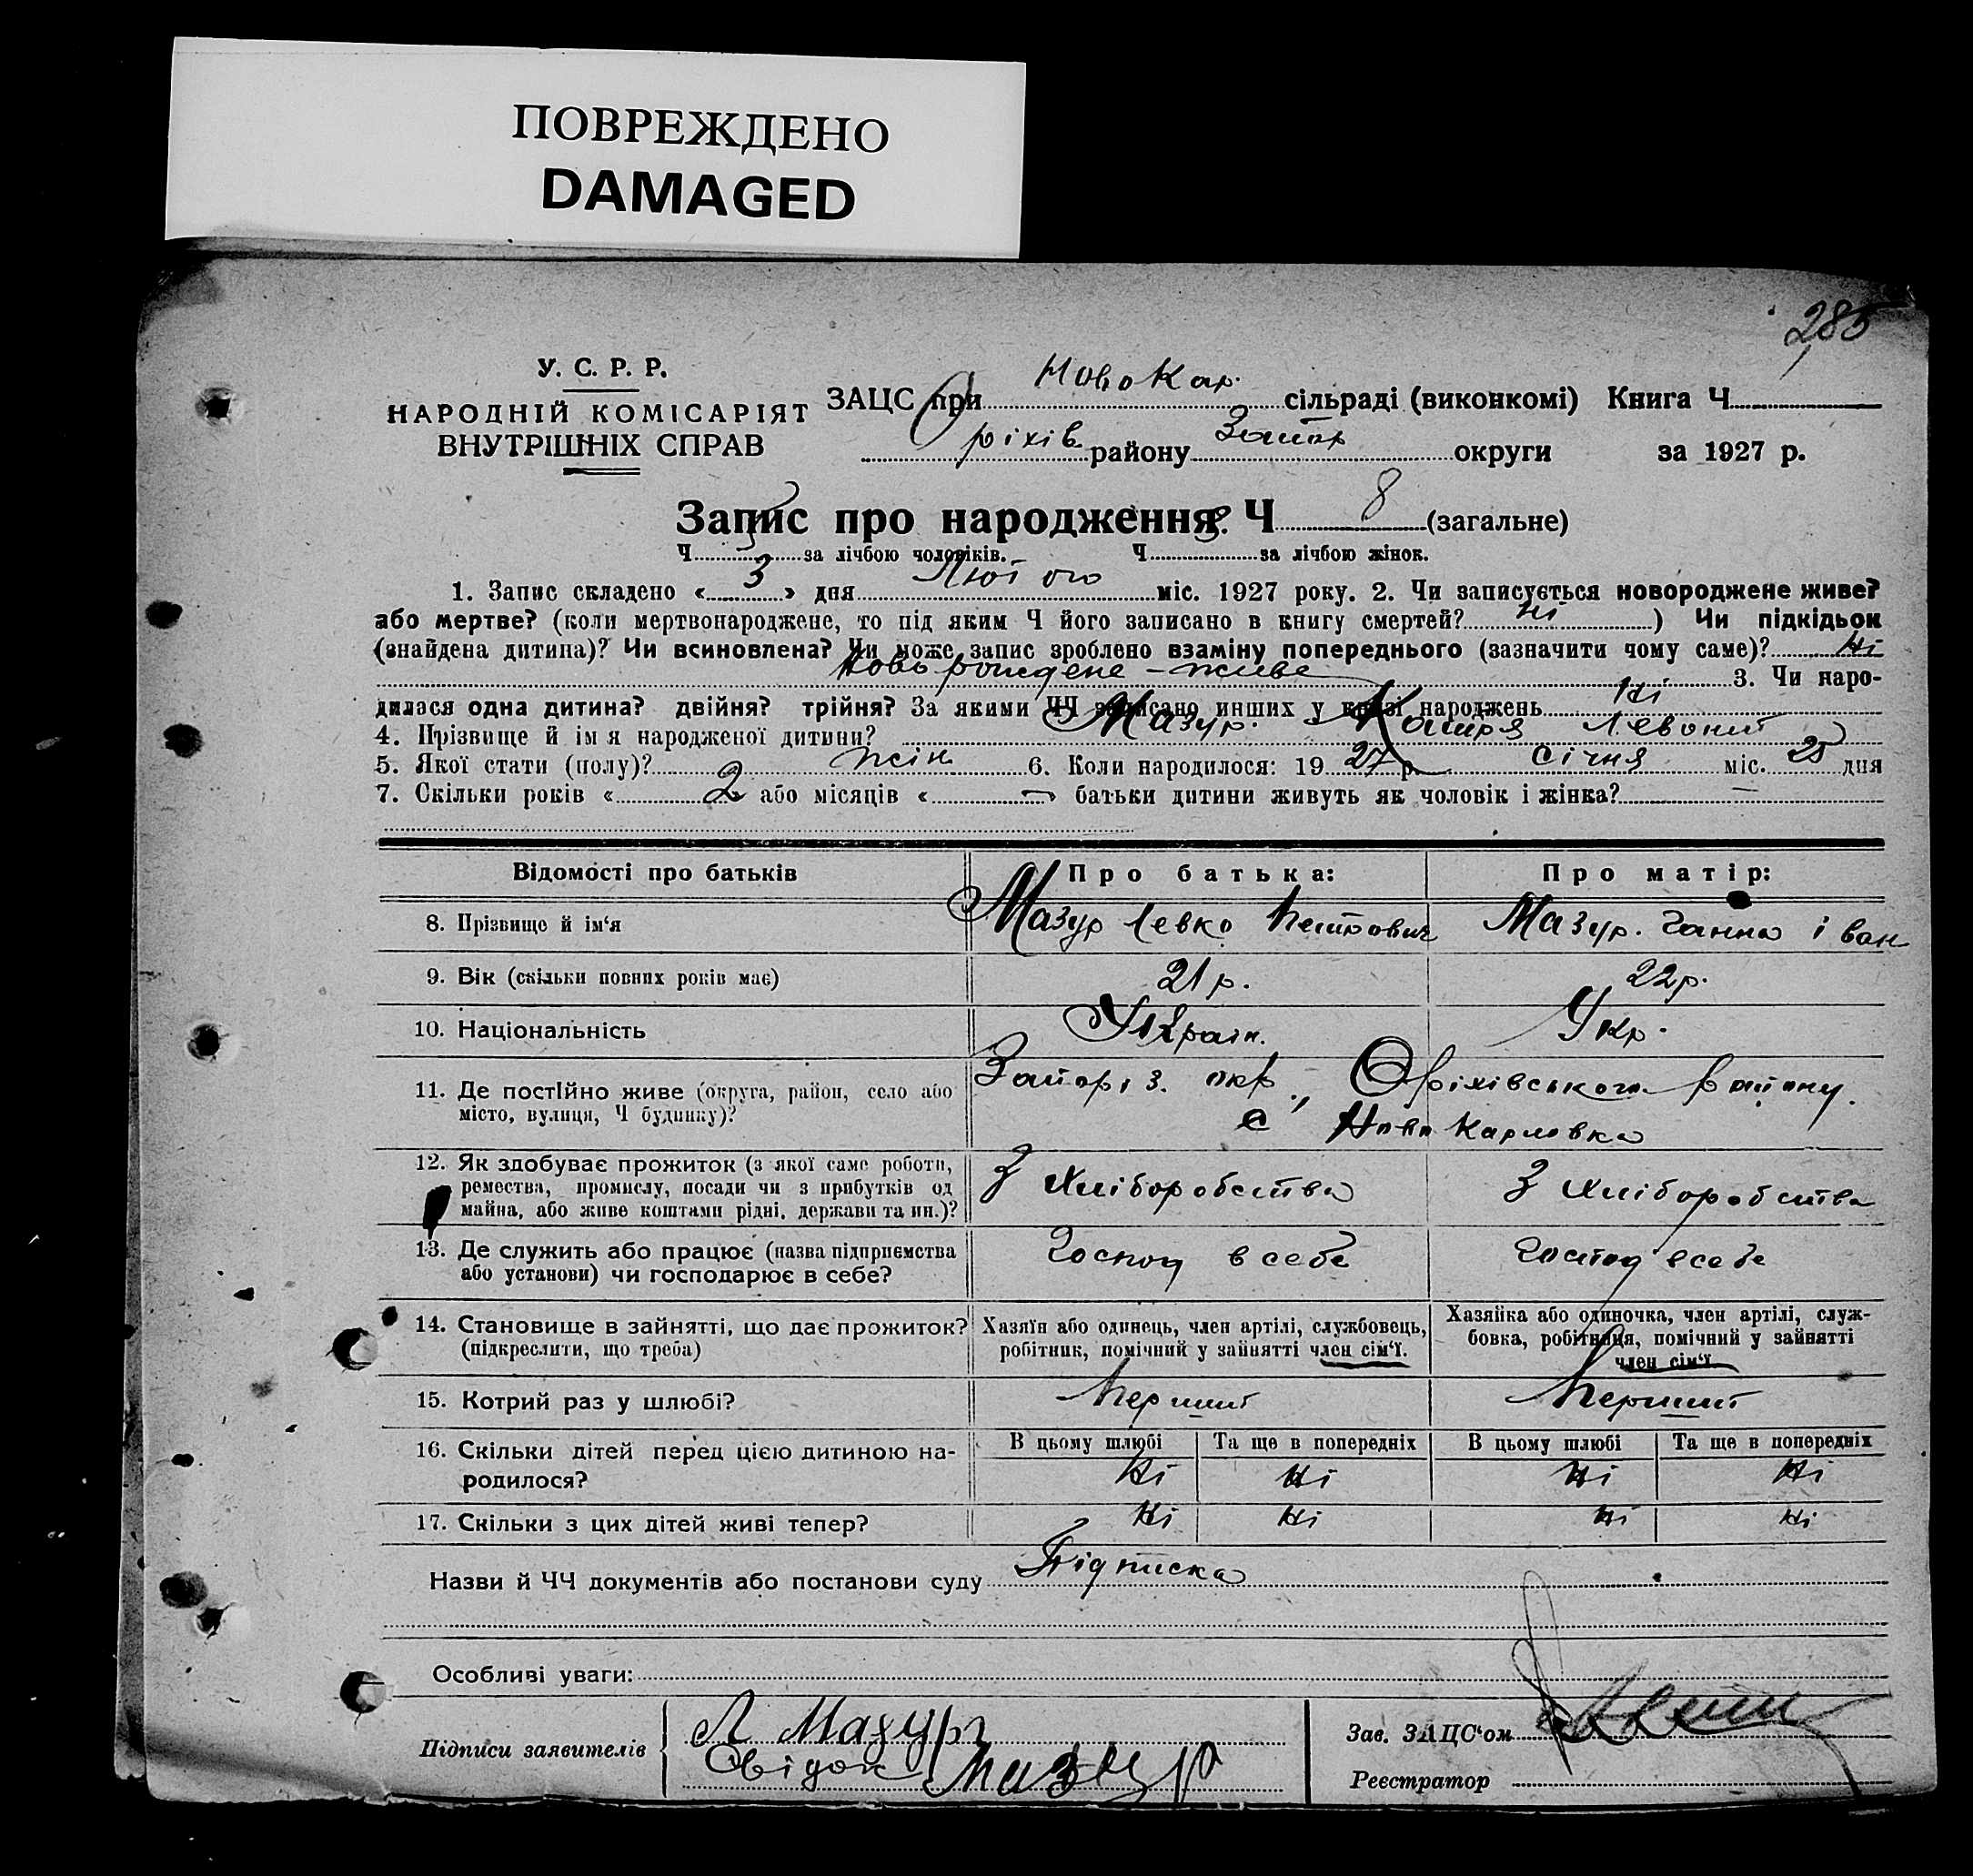 ПОВРЕЖДЕНО
DAMAGED
285
У. С. Р. Р.
НАРОДНІЙ КОМІСАРІЯТ
ВНУТРІШНІХ СПРАВ
ЗАЦС при Ново Кар. сільраді (виконкомі) Книга Ч
Оріхів району Запор округи за 1927 р.
Запис про народження. Ч 8 (загальне)
Ч за лічбою чоловіків. Ч 3 за лічбою жінок.
1. Запис складено « 3 » дня Лютого міс. 1927 року. 2. Чи записується новороджене живе?
або мертве? (коли мертвонароджене, то під яким Ч його записано в книгу смертей? ні ) Чи підкідьок
(знайдена дитина)? Чи всиновлена? Чи може запис зроблено взаміну попереднього (зазначити чому саме)? Ні
Новорождене - живе 3. Чи наро-
дилася одна дитина? двійня? трійня? За якими ЧЧ записано инших у книзі народжень Ні
4. Прізвище й ім я народженої дитини? Мазур.
5. Якої стати (полу)? жін. 6. Коли народилося: 19 27 р. січня міс. 25 дня
7. Скільки років « 2 або місяців « — » батьки дитини живуть як чоловік і жінка? —
Відомості про батьків Про батька: Про матір:
8. Прізвище й ім'я Мазур Левко Петрович Мазур. Ганна Іван
9. Вік (скільки повних років має) 21 р. 22 р.
10. Національність Україн. Укр.
11. Де постійно живе (округа, район, село або Запоріз. окр., Оріхівського району.
місто, вулиця, Ч будинку)? с Ново Карловка
12. Як здобуває прожиток (з якої саме роботи,
ремества, промислу, посади чи з прибутків од З Хліборобства З Хліборобства
майна, або живе коштами рідні, держави та ин.)?
13. Де служить або працює (назва підприємства Господ в себе Господ в себе
або установи) чи господарює в себе?
14. Становище в зайнятті, що дає прожиток? (підкреслити, що треба)
Хазяїн або одинець, член артілі, службовець,
робітник, помічний у зайнятті член сім'ї.
Хазяйка або одиночка, член артілі, служ-
бовка, робітниця, помічний у зайнятті
член сім'ї
15. Котрий раз у шлюбі? Перший Перший
16. Скільки дітей перед цією дитиною на-
родилося?
В цьому шлюбі Та ще в попередніх В цьому шлюбі Та ще в попередніх
Ні Ні Ні Ні
17. Скільки з цих дітей живі тепер? Ні Ні Ні Ні
Назви й ЧЧ документів або постанови суду Підписка
Особливі уваги:
Підписи заявителів
Л Мазур
Свідок Мазур
Зав. ЗАЦС'ом
Реєстратор